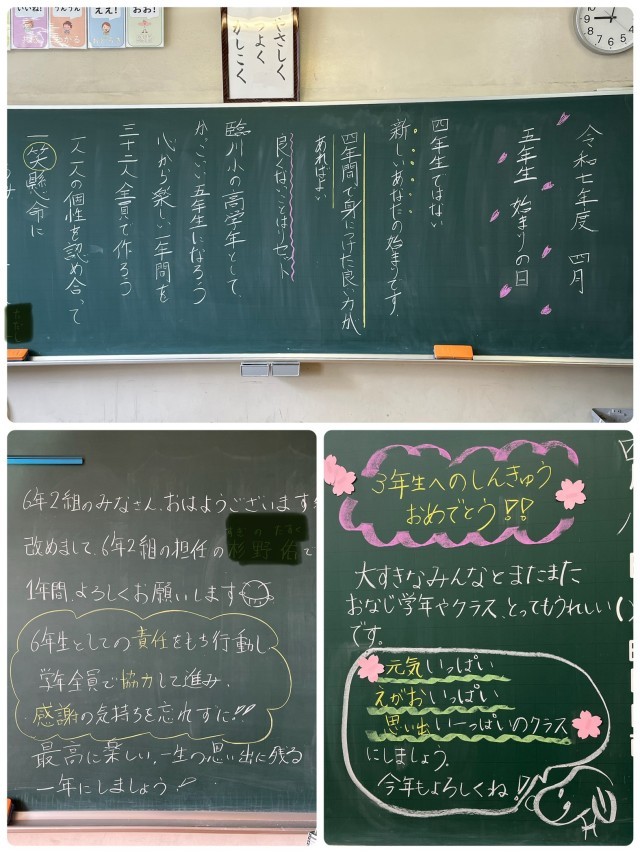 いいね!
うんうん
ええ!
おお!
やさしく
つよく
かしこく
令和七年度 四月
五年生 始まりの日
四年生ではない
新しいあなたの始まりです。
四年間で身につけた良い力が
あればよい
良くないことはリセット
臨川小の高学年として、
かっこいい五年生になろう
心から楽しい一年間を
三十二人全員で作ろう
一人一人の個性を認め合って
一笑懸命に
6年2組のみなさん、おはようございます
改めまして、6年2組の担任の杉野 佑で
1年間、よろしくお願いします
6年生としての責任をもち行動し
学年全員で協力して進み、
感謝の気持ちを忘れずに!!
最高に楽しい、一生の思い出に残る
一年にしましょう!
3年生へのしんきゅう
おめでとう!!
大すきなみんなとまたまた
おなじ学年やクラス、とってもうれしい
です。
元気いっぱい
えがおいっぱい
思い出いーっぱいのクラス
にしましょう。
今年もよろしくね!